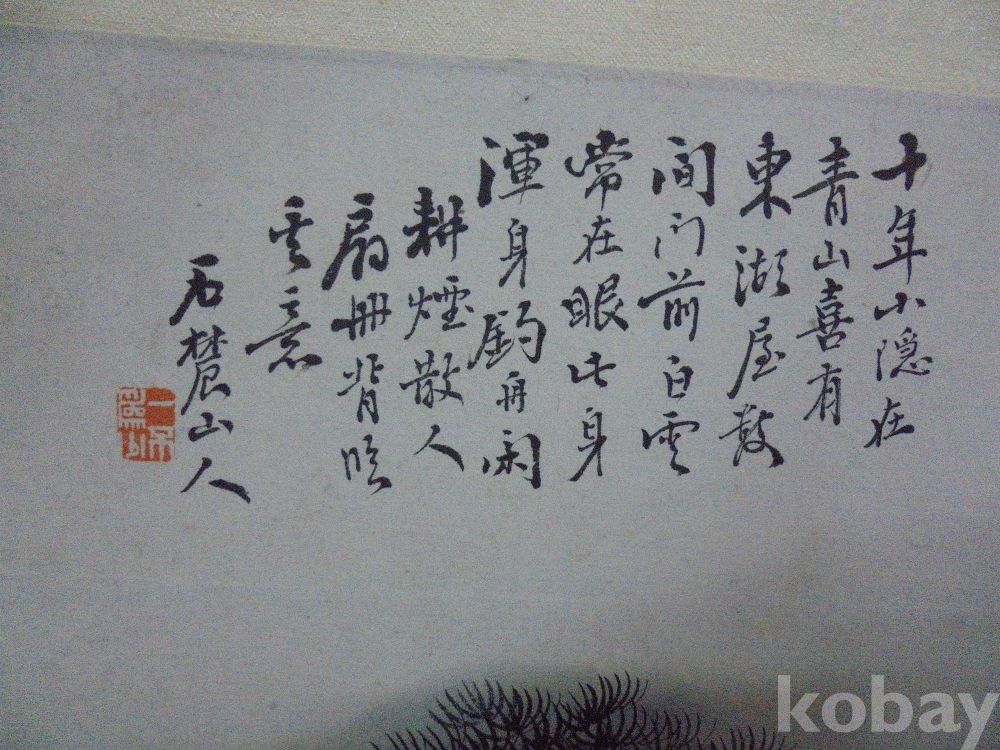 十年小隱在
青山喜有
東湖屋數
間門前白雲
常在眼此身
渾身釣舟閑
耕煙散人
扇冊背臨
其意
石農山人
kobay